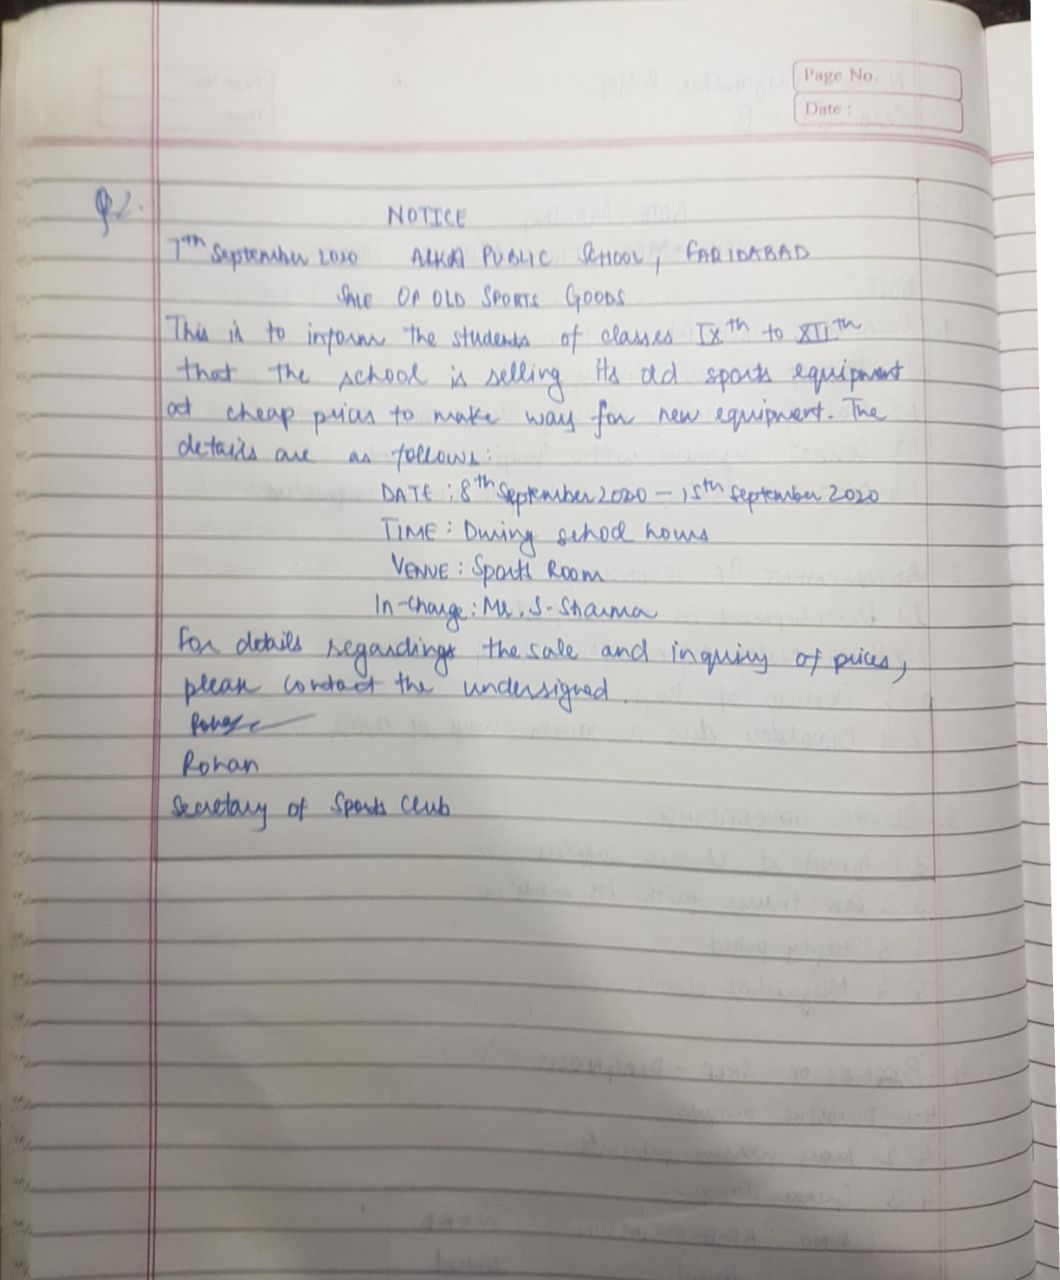 Page No.
Date :
Q2.
NOTICE
7th September 2020 ALKA PUBLIC SCHOOL, FARIDABAD
SALE OF OLD SPORTS GOODS
This is to inform the students of classes IXth to XIIth
that the school is selling its old sports equipment
at cheap prices to make way for new equipment. The
details are as follows:
DATE : 8th September 2020 - 15th September 2020
TIME : During school hours
VENUE : Sports Room
In-charge : Mr. S. Sharma
For details regardings the sale and inquiry of prices,
please contact the undersigned.
Rohan
Secretary of Sports Club